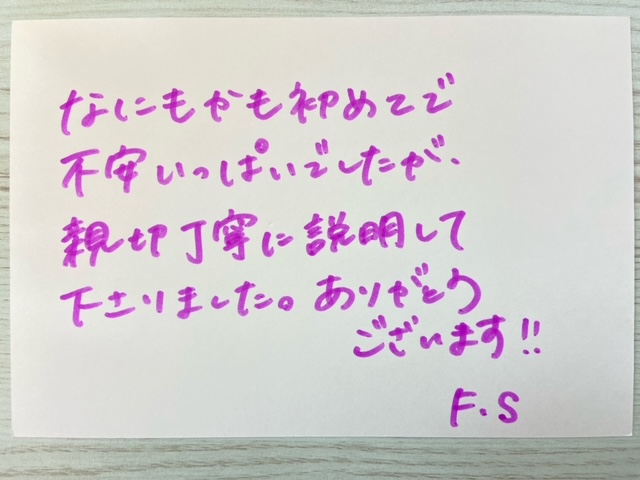 なにもかも初めてで
不安いっぱいでしたが、
親切丁寧に説明して
下さりました。ありがとう
ございます!!
F.S